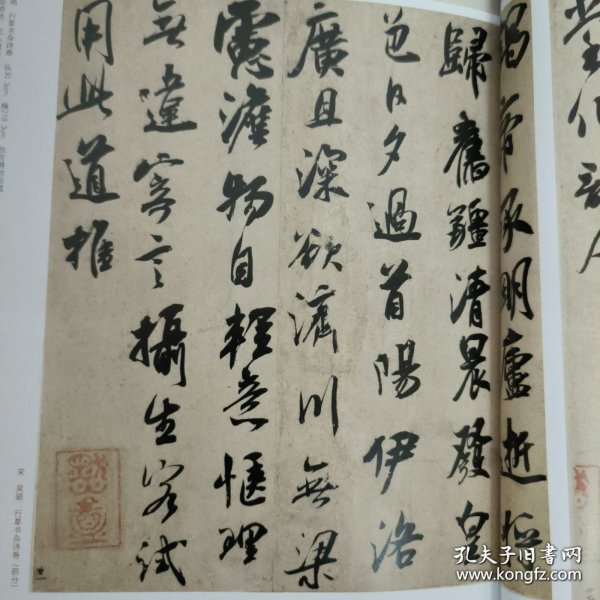 謁帝承明廬逝將
歸舊疆清晨發皇
邑日夕過首陽伊洛
廣且深欲濟川無梁
慮澹物自輕意愜理
無違寄言攝生客試
用此道推
宋 吴琚 行草书杂诗卷（部分）
孔夫子旧书网
www.kongfz.com